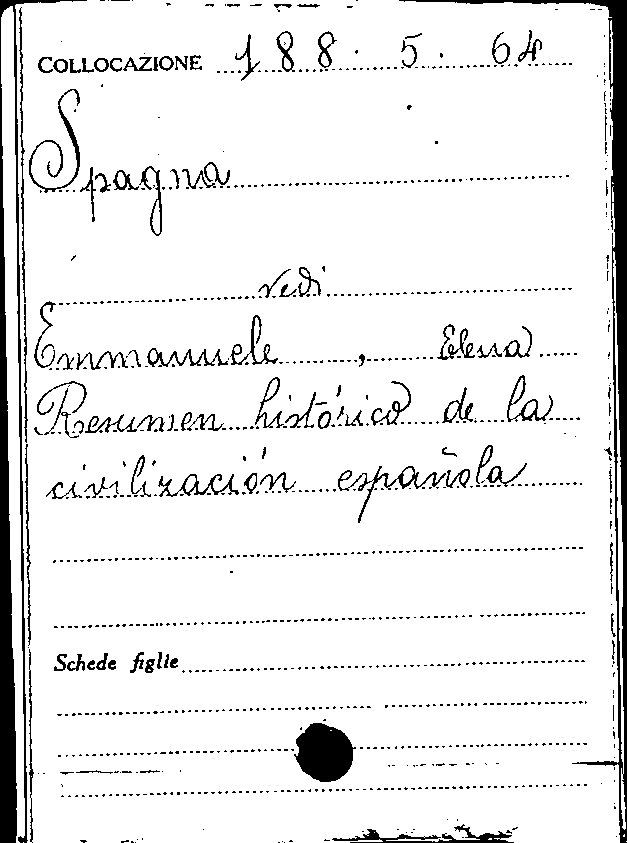 COLLOCAZIONE 188. 5. 64
Spagna
vedi
Emmanuele, Elena
Resumen histórico de la
civilización española
Schede figlie